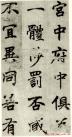 宫中府中俱為
一體陟罰臧否
不宜異同若有